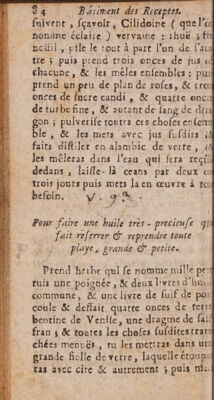 84 Bâtiment des Receptes.
suivent, sçavoir, Cilidoine (quel'c
nomine éclaire) vervaine : rhuë : fe
noüil, pile le tout à part l'un de l'au
tre ; puis prend trois onces de jus de
chacune, & les mêles ensembles : puis
prend un peu de plan de roses, & trois
onces de sucre candi, & quatre onces
de turbie fine, & autant de sang de dra
gon ; pulverise toutes ces choses ensem
ble, & les mets avec jus susdits
faits distiler en alambic de verre, &
les mêleras dans l'eau qui sera
dedans, laisse-là ceans par deux ou
trois jours puis mets la en œuvre à
besoin.
Pour faire une huile très-precieuse qui
fait reserrer & reprendre toute
playe, grande & petite.
Prend herbe qui se nomme mille per
tuis une poignée, & deux livres d'huile
commune, & une livre de suif de
coule & deffait quatre onces de tere
bentine de Venise, une dragme de saf
fran ; & toutes les choses susdites tran
chées menuës, tu les mettras dans une
grande fiolle de verre, laquelle étoupe
ras avec cire & autrement ; puis